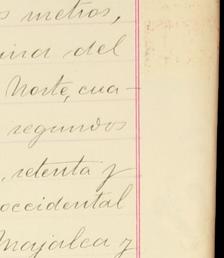 s metros,
ina del
Norte, cua-
segundos
, setenta y
occidental
Majalca y